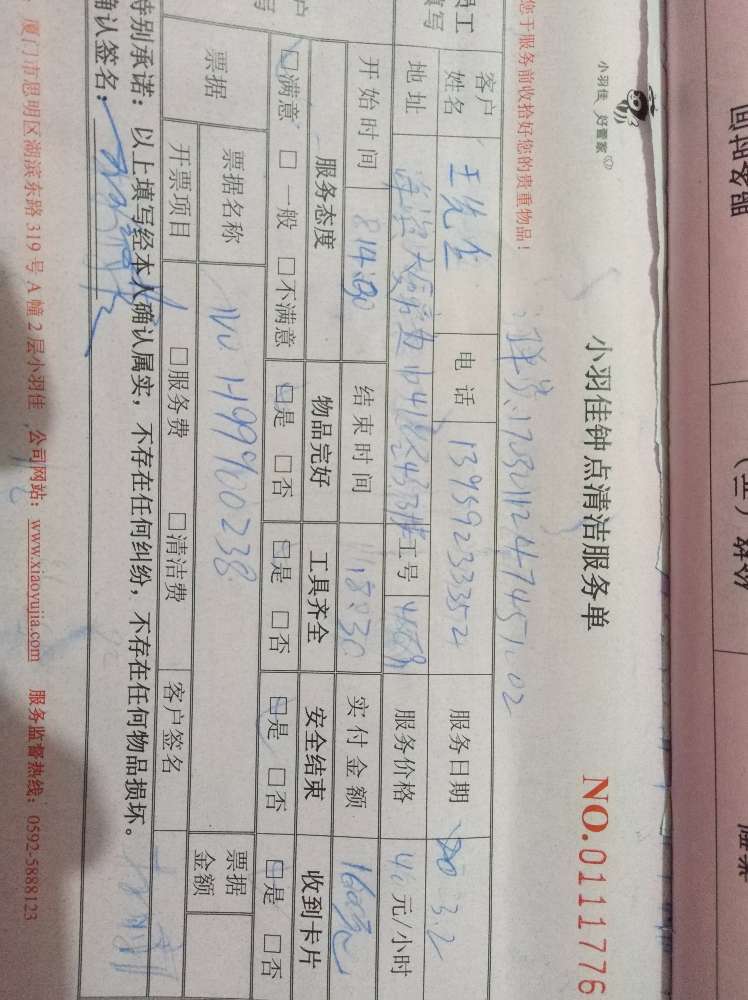 小羽佳 好管家
小羽佳钟点清洁服务单
NO.0111776
您于服务前收拾好您的贵重物品！
员工
填写
客户
姓名
王先生
电话
13959233352
服务日期
3.2
地址
工号
服务价格
40元/小时
开始时间
14:30
结束时间
18:30
实付金额
160元
服务态度
物品完好
工具齐全
安全结束
收到卡片
□满意 □一般 □不满意
□是 □否
□是 □否
□是 □否
□是 □否
票据
票据名称
NO H99960238
票据
金额
开票项目
□服务费 □清洁费
客户签名
特别承诺：以上填写经本人确认属实，不存在任何纠纷，不存在任何物品损坏。
确认签名：
厦门市思明区湖滨东路319号A幢2层小羽佳 公司网站：www.xiaoyujia.com 服务监督热线：0592-5888123